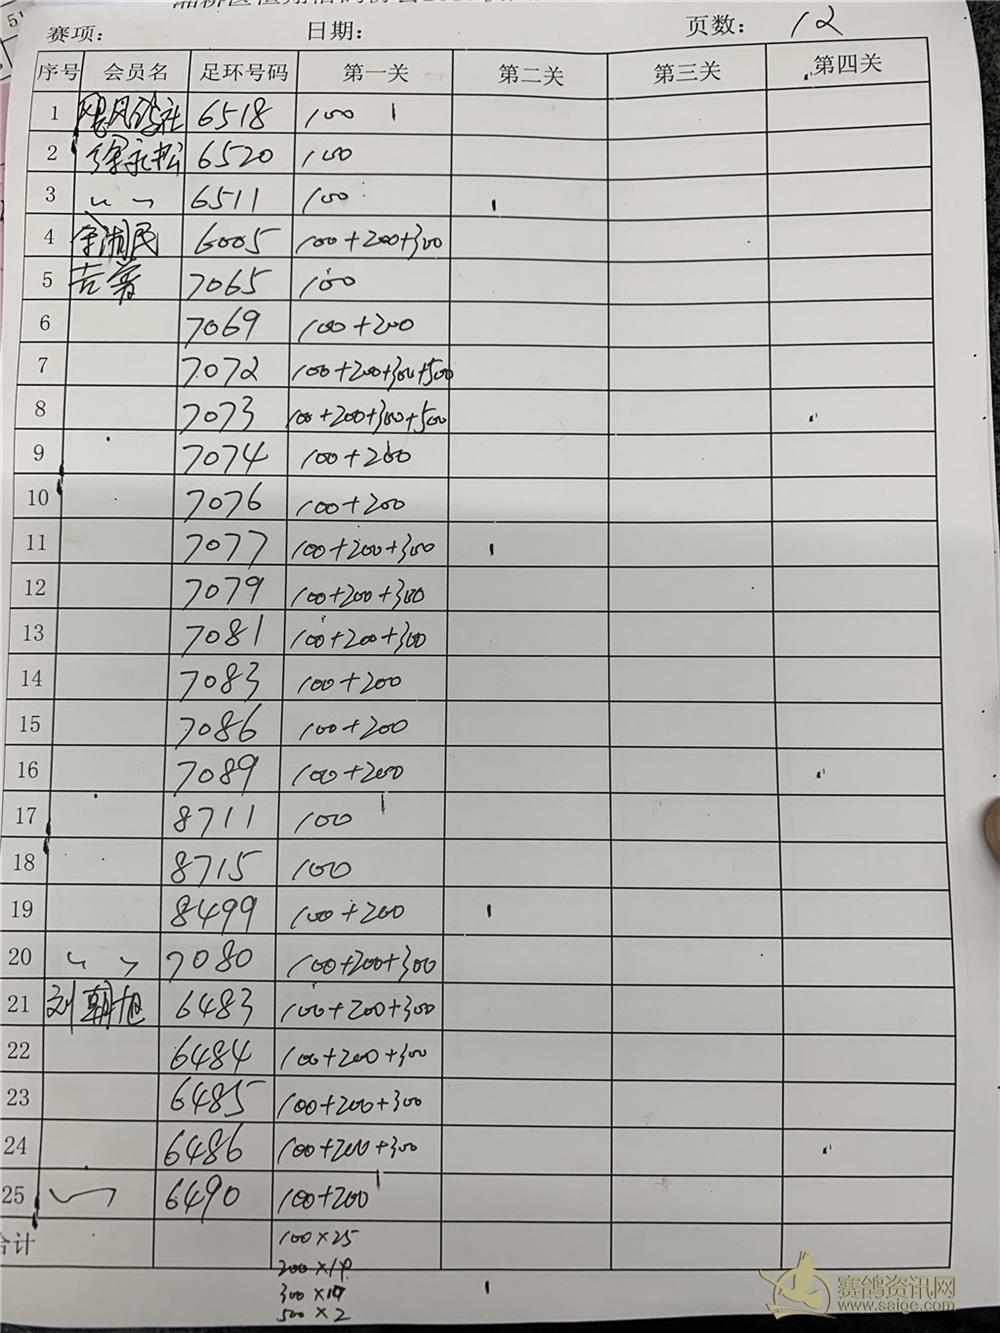 赛项： 日期： 页数： 12
序号 会员名 足环号码 第一关 第二关 第三关 第四关
1 6518 100
2 徐永松 6520 100
3 〃 6511 100
4 6005 100+200+300
5 7065 100
6 7069 100+200
7 7072 100+200+300+500
8 7073 100+200+300+500
9 7074 100+200
10 7076 100+200
11 7077 100+200+300
12 7079 100+200+300
13 7081 100+200+300
14 7083 100+200
15 7086 100+200
16 7089 100+200
17 8711 100
18 8715 100
19 8499 100+200
20 〃 7080 100+200+300
21 刘朝旭 6483 100+200+300
22 6484 100+200+300
23 6485 100+200+300
24 6486 100+200+300
25 6490 100+200
合计 100×25
200×19
300
500×2
赛鸽资讯网
www.saige.com